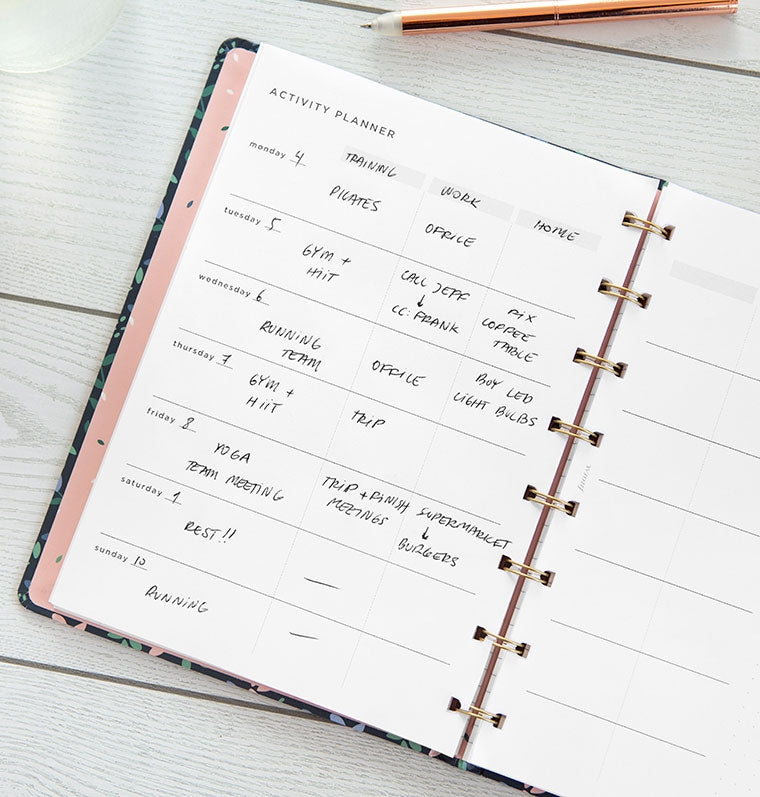 ACTIVITY PLANNER
monday 4
TRAINING
WORK
HOME
PILATES
OFFICE
tuesday 5
GYM +
HIIT
CALL JEFF
↓
CC: FRANK
FIX
COFFEE
TABLE
wednesday 6
RUNNING
TEAM
OFFICE
BUY LED
LIGHT BULBS
thursday 7
GYM +
HIIT
TRIP
friday 8
YOGA
TEAM MEETING
TRIP + FINISH
MEETINGS
SUPERMARKET
↓
BURGERS
saturday 9
REST!!
—
sunday 10
RUNNING
—